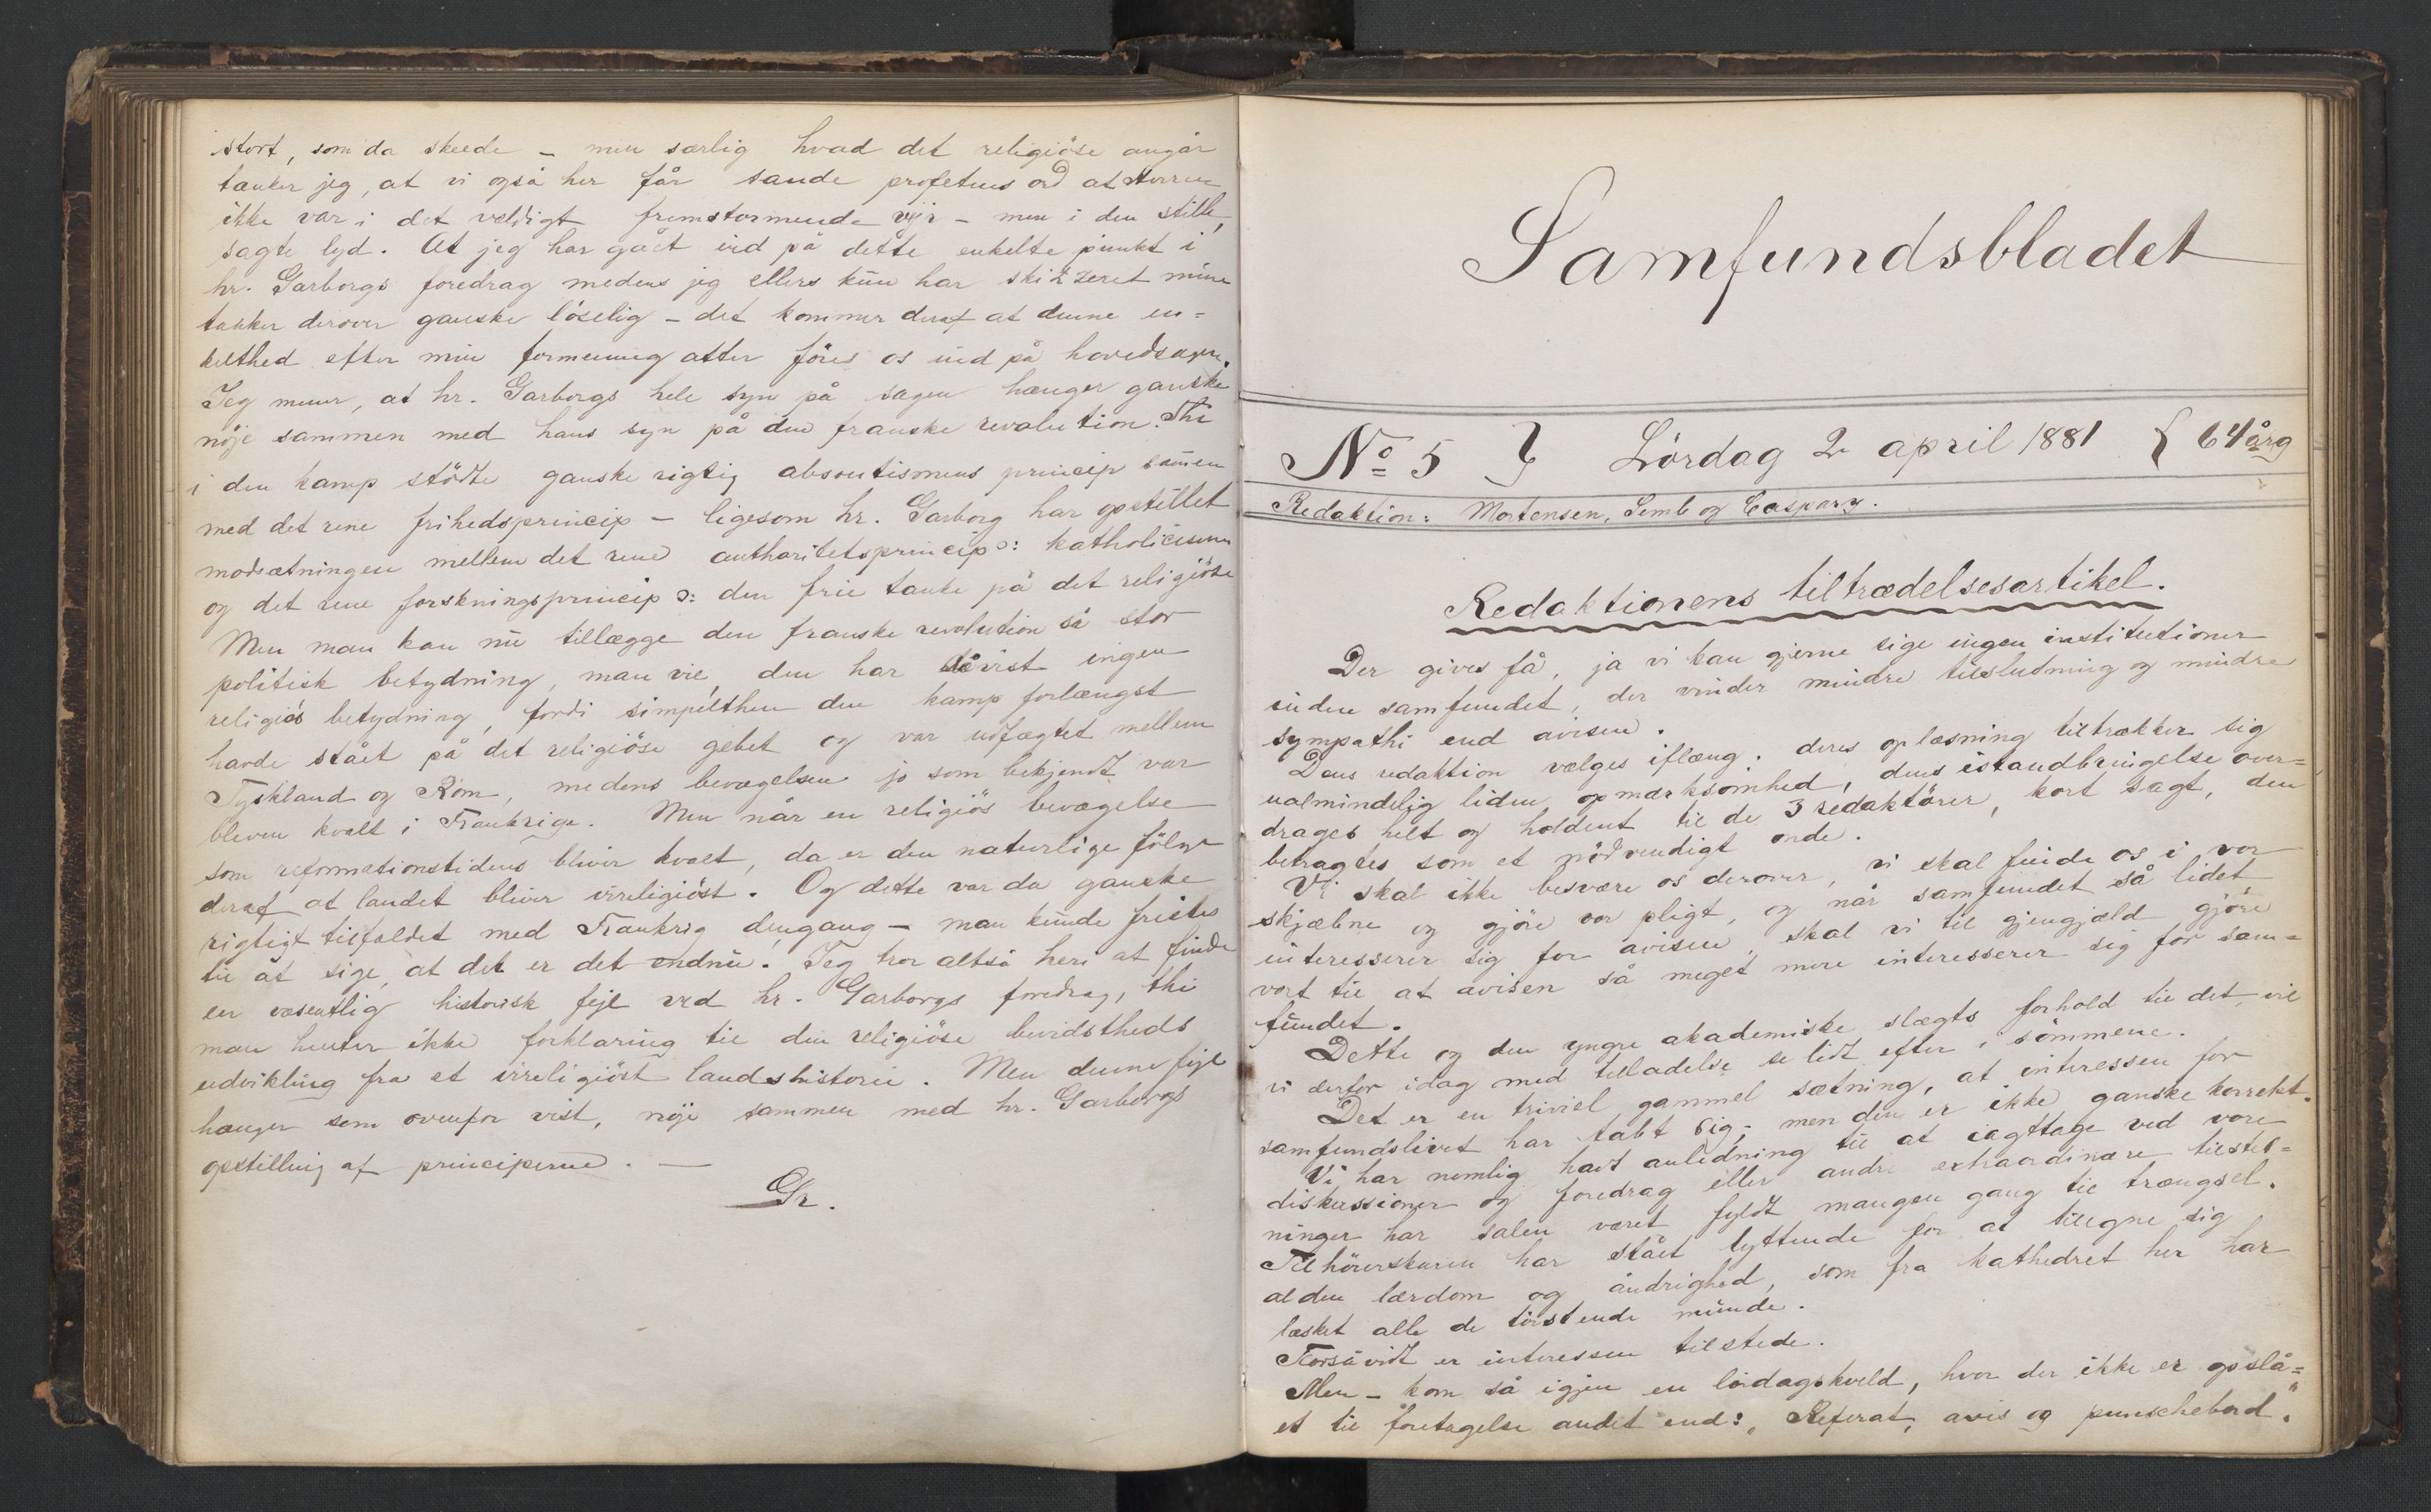 stort, som da skeede – men særlig hvad det religiöse angår
tænker jeg, at vi også her får sande profetens ord at Herren
ikke var i det vældigt fremstormende vejr – men i den stille,
sagte lyd. At jeg har gået ind på dette enkelte punkt i
hr. Garborgs foredrag medens jeg ellers kun har skizzeret mine
tanker derover ganske löselig – det kommer deraf at denne en=
kelthed efter min formening atter förer os ind på hovedsagen.
Jeg mener, at hr. Garborgs hele syn på sagen hænger ganske
nöje sammen med hans syn på den franske revolution. Thi
i den kamp stödte ganske rigtig absoutismens princip samen
med det rene frihedsprincip – ligesom hr. Garborg har opstillet
modsætningen mellem det rene authoritetsprincip ɔ: katholicismen
og det rene forskningsprincip ɔ: den frie tanke på det religiöse
Men man kan nu tillægge den franske revolution så stor
politisk betydning, man vil, den har såvist ingen
religiös betydning, fordi simpelthen den kamp forlængst
havde stået på det religiöse gebet og var udfægtet mellem
Tyskland og Rom, medens bevægelsen jo som bekjendt var
bleven kvalt i Frankrige. Men når en religiös bevægelse
som reformationstidens bliver kvalt, da er den naturlige fölge
deraf at landet bliver irreligiöst. Og dette var da ganske
rigtigt tilfældet med Frankrig dengang – man kunde fristes
til at sige, at det er det endnu. Jeg tror altså heri at finde
en væsentlig historisk fejl ved hr. Garborgs foredrag, thi
man henter ikke forklaring til den religiöse bevidstheds
udvikling fra et irreligiöst landshistorie. Men denne fejl
hænger som ovenfor vist, nöje sammen med hr. Garborgs
opstilling af principerne. —
Gr.
Samfundsbladet
No 5 } Lördag 2 april 1881 { 64 årg
Redaktion: Mortensen, Semb og Caspary.
Redaktionens tiltrædelsesartikel.
Der gives få, ja vi kan gjerne sige ingen institutioner
inden samfundet, der vinder mindre tilslutning og mindre
sympathi end avisen.
Dens redaktion vælges iflæng; deres oplæsning tiltrækker sig
ualmindelig liden opmærksomhed, dens istandbringelse over=
drages helt og holdent til de 3 redaktörer, kort sagt, den
betragtes som et nödvendigt onde.
Vi skal ikke besvære os derover, vi skal finde os i vor
skjæbne og gjöre vor pligt, og når samfundet så lidet
interesserer sig for avisen, skal vi til gjengjæld gjöre
vort til at avisen så meget mere interesserer sig for sam=
fundet.
Dette og den yngre akademiske slægts forhold til det vil
vi derfor idag med tilladelse se lidt efter i sömmene.
Det er en triviel gammel sætning, at interessen for
samfundslivet har tabt sig; men den er ikke ganske korrekt.
Vi har nemlig havt anledning til at iagttage ved vore
diskussioner og foredrag eller andre extraordinære tilstel=
ninger har salen været fyldt mangen gang til trængsel.
Tilhörerskaren har stået lyttende for at tilegne sig
al den lærdom og åndrighed, som fra kathedret her har
læsket alle de törstende munde.
Forsåvidt er interessen tilstede.
Men – kom så igjen en lördagskveld, hvor der ikke er opslå=
et til foretagelse andet end: „Referat, avis og punschebord."